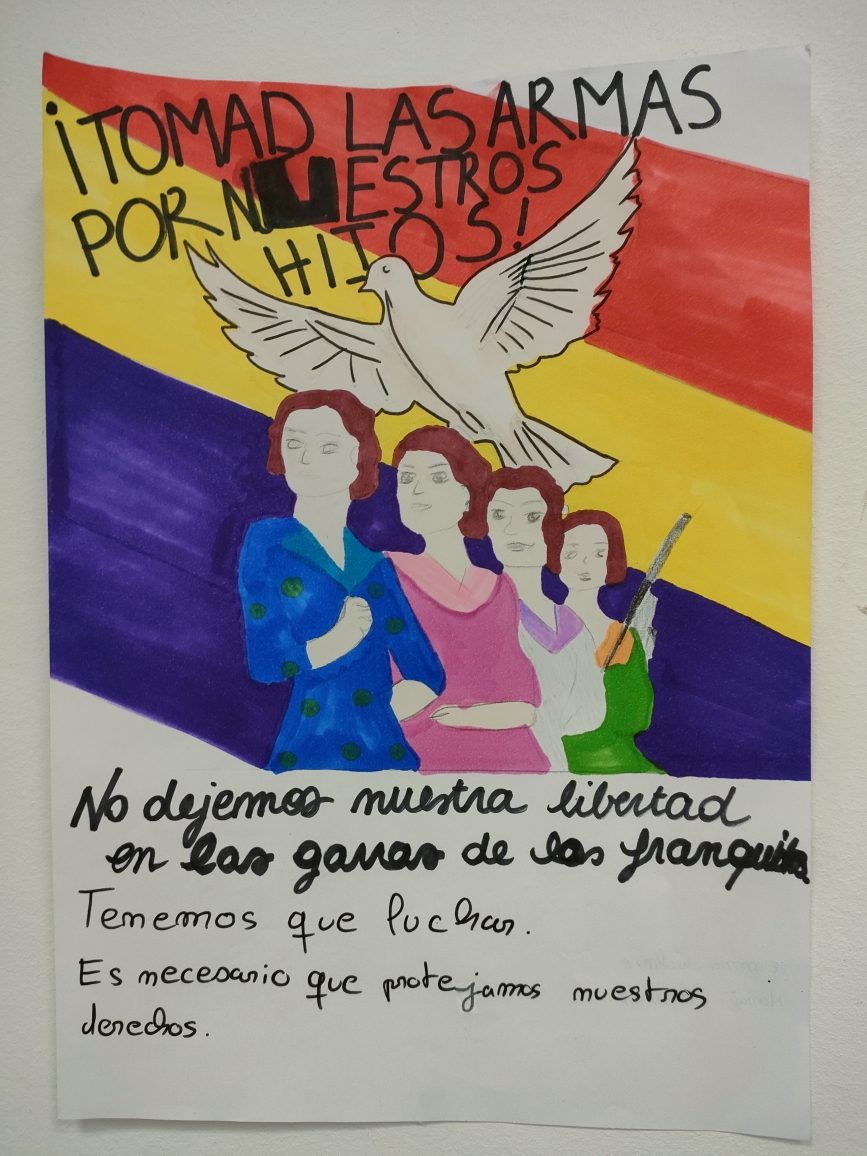 ¡TOMAD LAS ARMAS
POR NUESTROS
HIJOS!
No dejemos nuestra libertad
en las garras de los franquistas
Tenemos que luchar.
Es necesario que protejamos nuestros
derechos.